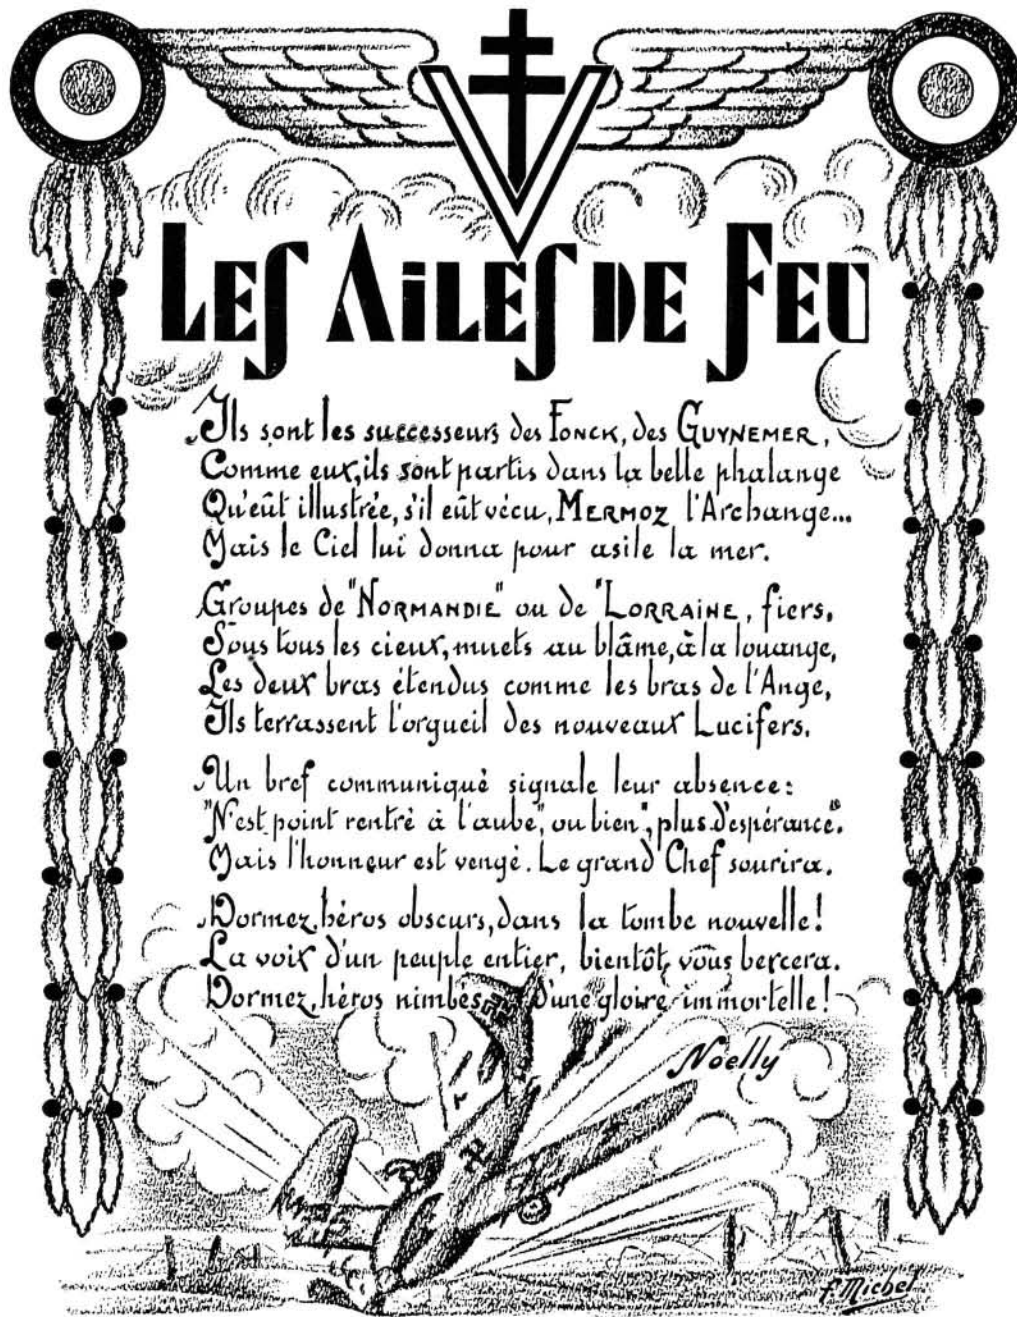 LES AILES DE FEU
Ils sont les successeurs des FONCK, des GUYNEMER,
Comme eux, ils sont partis dans la belle phalange
Qu'eût illustrée, s'il eût vécu, MERMOZ l'Archange...
Mais le Ciel lui donna pour asile la mer.
Groupes de "NORMANDIE" ou de "LORRAINE, fiers,
Sous tous les cieux, muets au blâme, à la louange,
Les deux bras étendus comme les bras de l'Ange,
Ils terrassent l'orgueil des nouveaux Lucifers.
Un bref communiqué signale leur absence:
"N'est point rentré à l'aube", ou bien", plus d'espérance".
Mais l'honneur est vengé. Le grand Chef sourira.
Dormez, héros obscurs, dans la tombe nouvelle!
La voix d'un peuple entier, bientôt, vous bercera.
Dormez, héros nimbés d'une gloire immortelle!
Noëlly
F. Michel